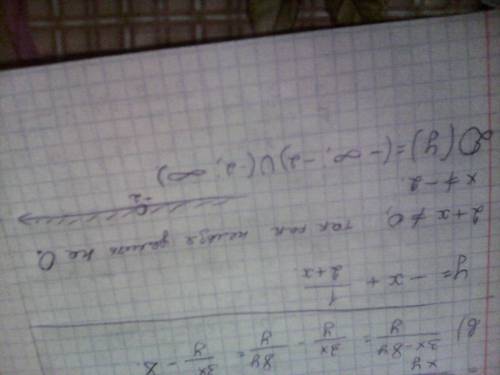 в) (3x-8y)/y = 3x/y - 8y/y = 3x/y - 8.
y = -x + 1/(2+x).
2+x ≠ 0, так как нельзя делить на 0.
x ≠ -2.
-2
D(y)=(-∞; -2)∪(-2; ∞)